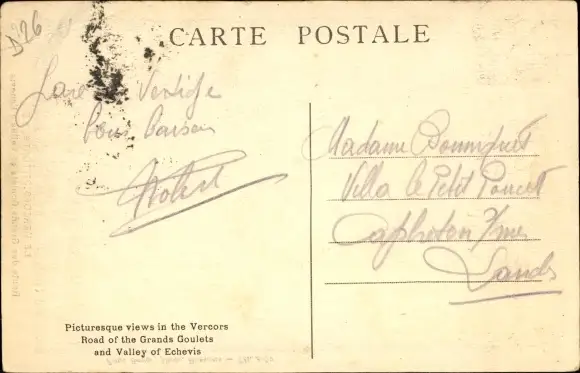 D26
CARTE POSTALE
Vertige
bons baisers
Robert
Madame Bonniquet
Villa le Petit Poucet
Capbreton s/mer
Landes
Picturesque views in the Vercors
Road of the Grands Goulets
and Valley of Echevis